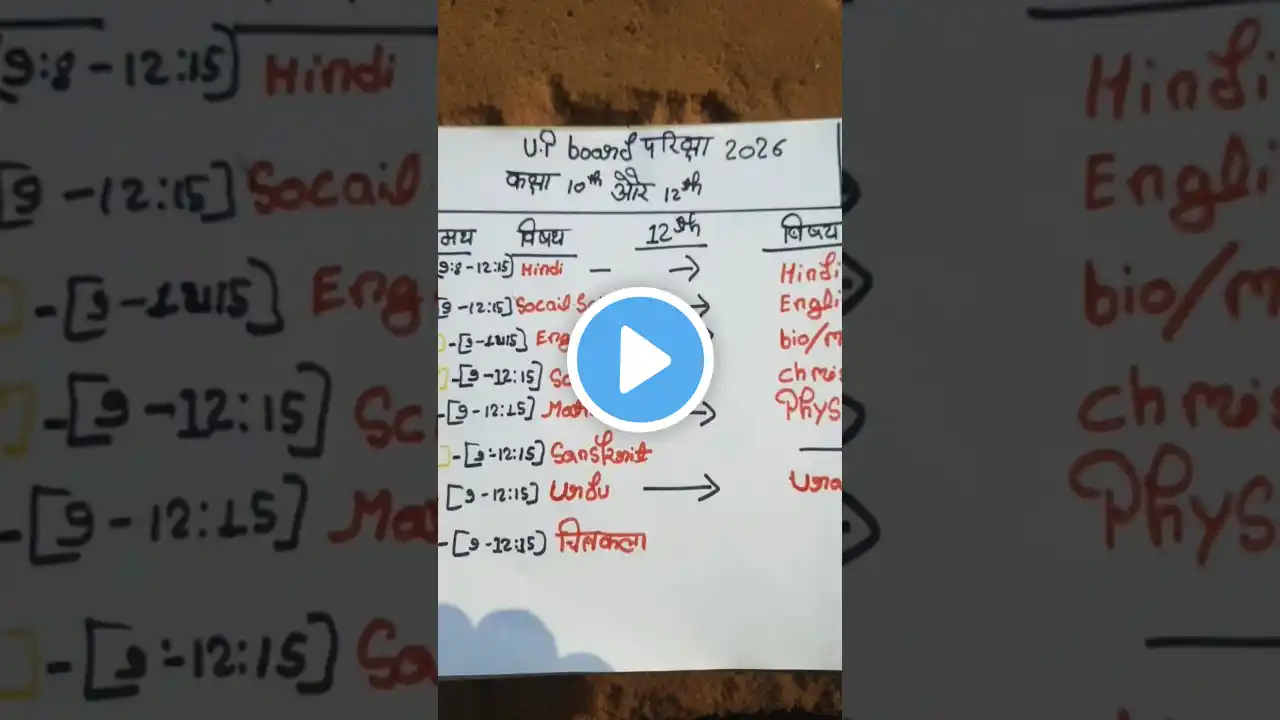 U.P board परिक्षा 2026
कक्षा 10th और 12th
मय विषय 12th विषय
[9:8-12:15] Hindi — → Hindi
[9-12:15] Socail → Engli
-[9-12:15] Eng bio/m
-[9-12:15] Sc chmis
-[9-12:15] Mat → Phys
-[9:-12:15] Sanskrit —
-[9-12:15] Urdu → Urd
-[9-12:15] चित्रकला